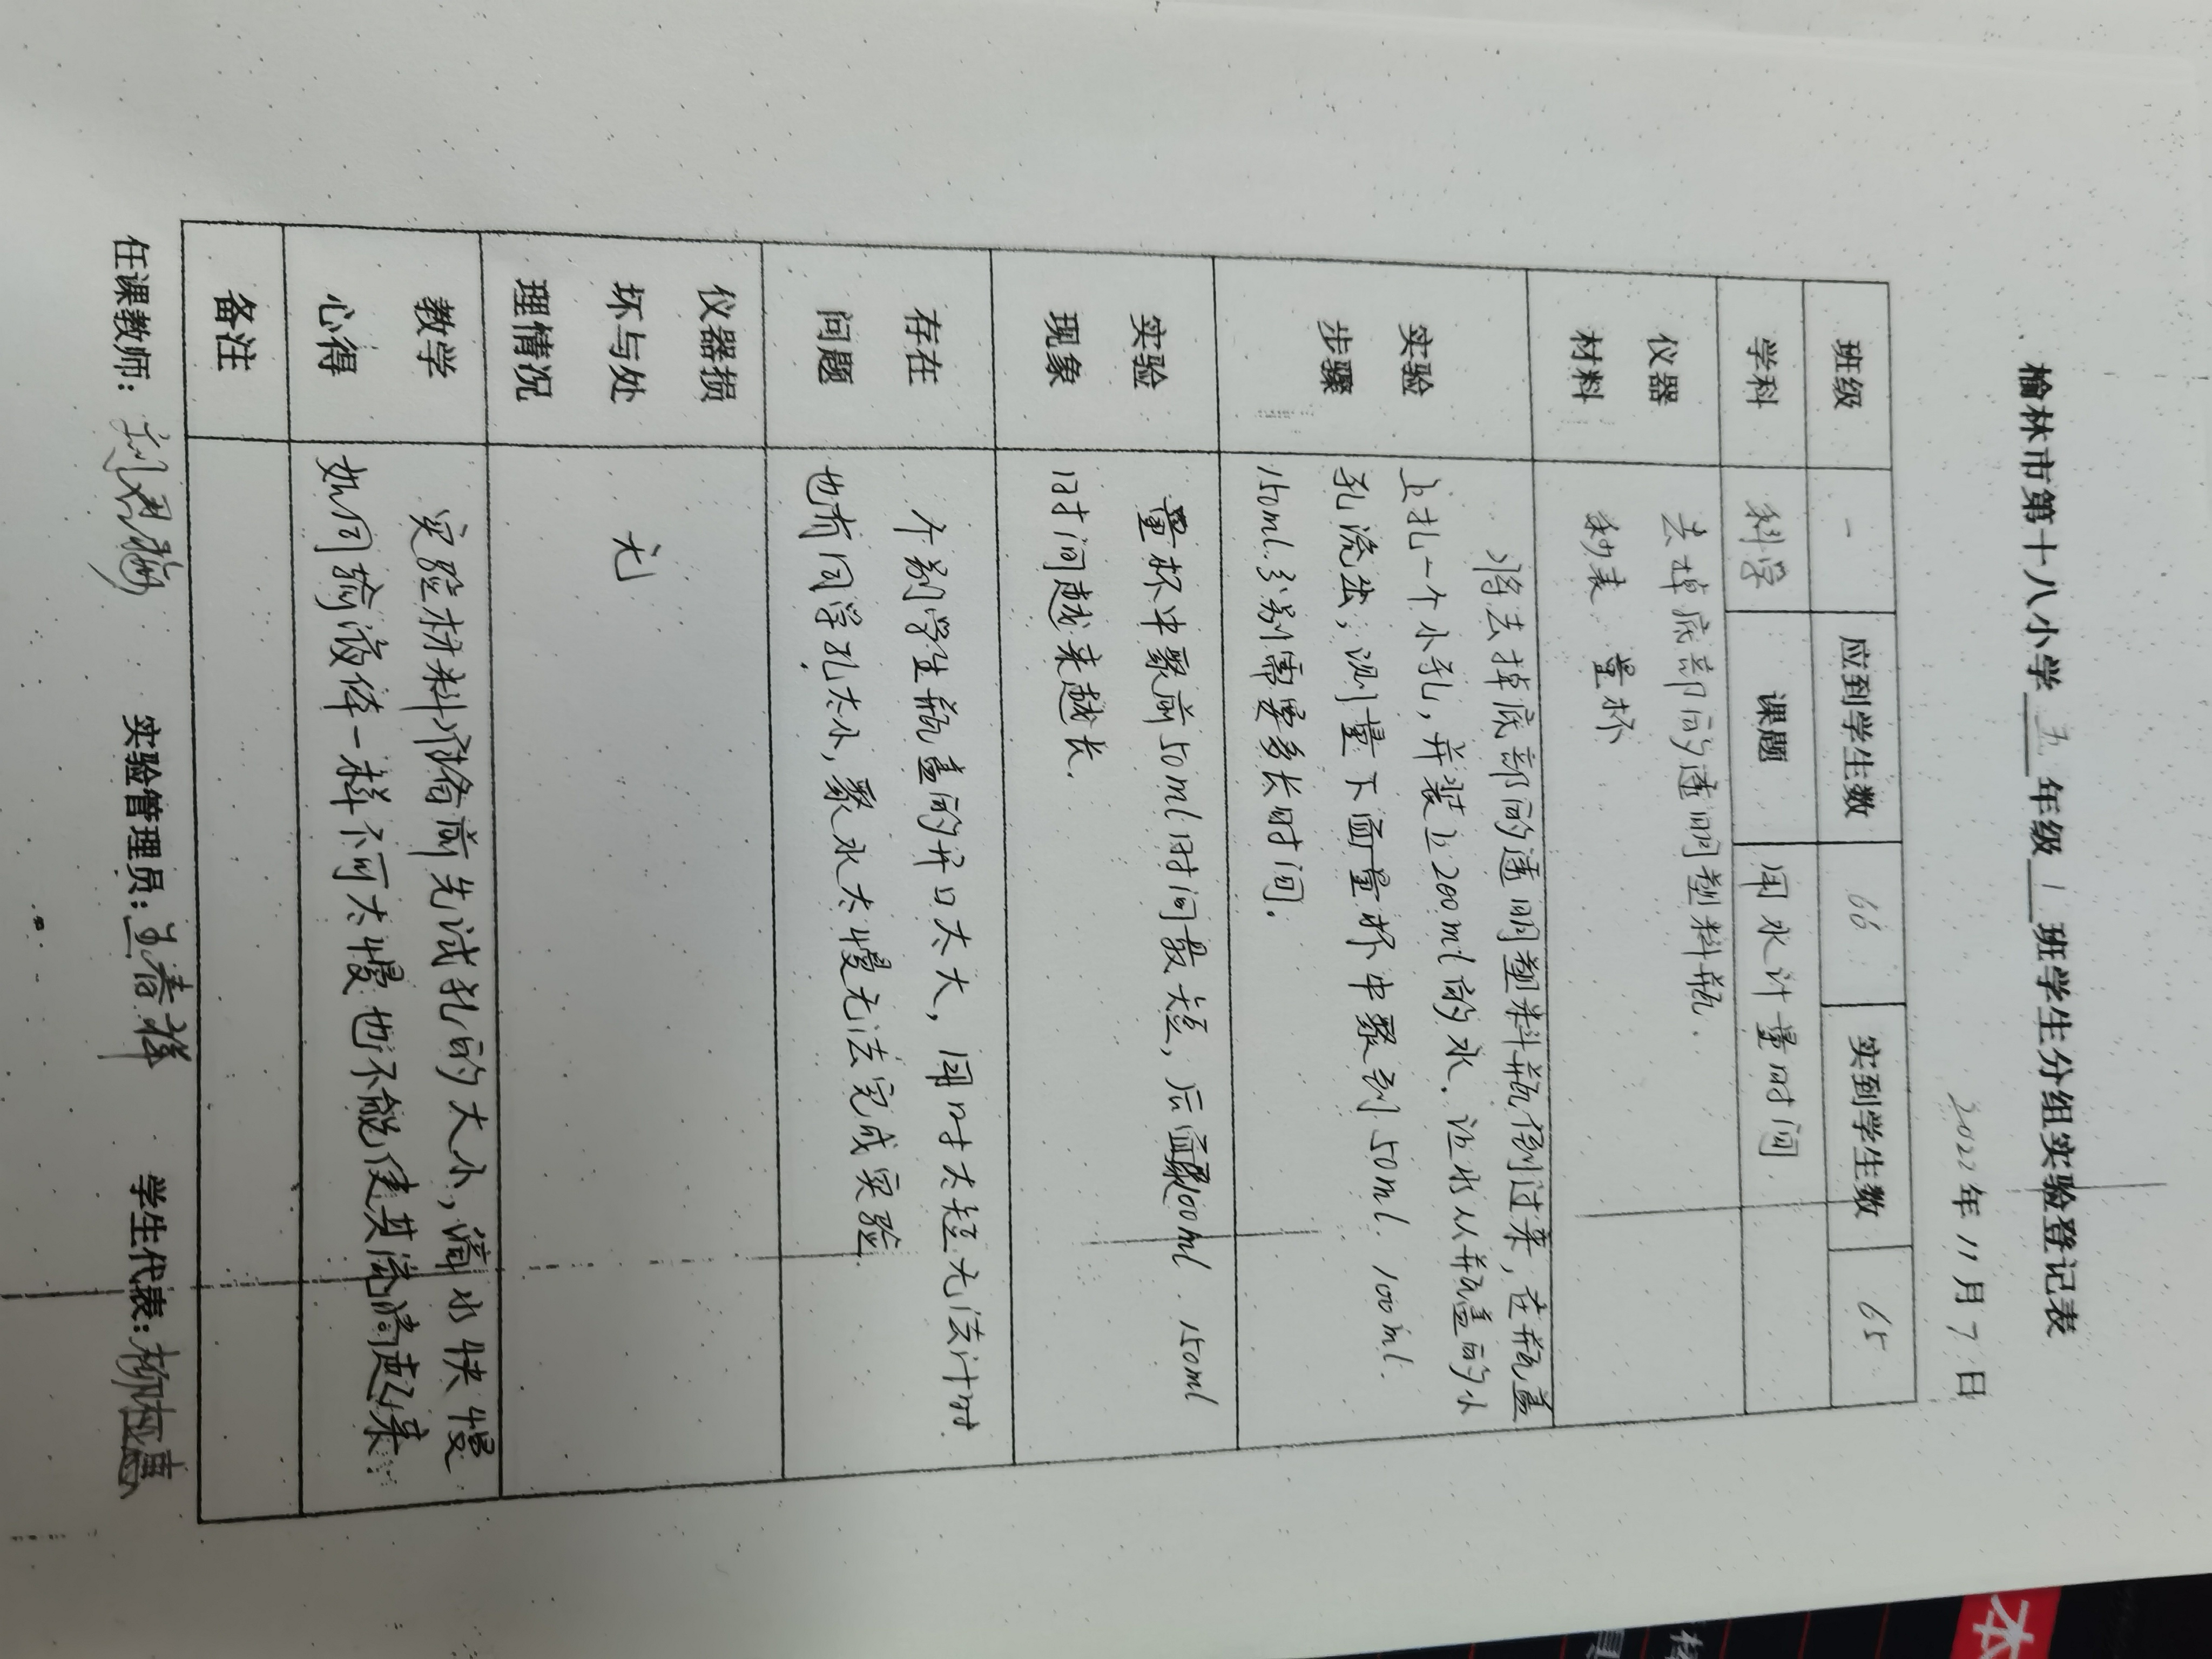 榆林市第十八小学 五 年级 1 班学生分组实验登记表
2022年11月7日
班级 一 应到学生数 66 实到学生数 65
学科 科学 课题 用水计量时间
仪器材料
去掉底部的透明塑料瓶.
秒表 量杯
实验步骤
将去掉底部的透明塑料瓶倒过来,在瓶盖
上扎一个小孔,并装上200ml的水.让水从瓶盖的小
孔流出,测量下面量杯中聚到50ml.100ml.
150ml.分别需要多长时间.
实验现象
量杯中聚前50ml时间最短,后面聚100ml.150ml
时间越来越长.
存在问题
个别学生瓶盖的开口太大,用时太短无法计时.
也有同学孔太小,聚水太慢无法完成实验
仪器损坏与处理情况
无
教学心得
实验材料准备前先试孔的大小,滴水快慢
如同输液体一样不可太慢也不能使其流淌起来.
备注
任课教师: 实验管理员: 学生代表:
本